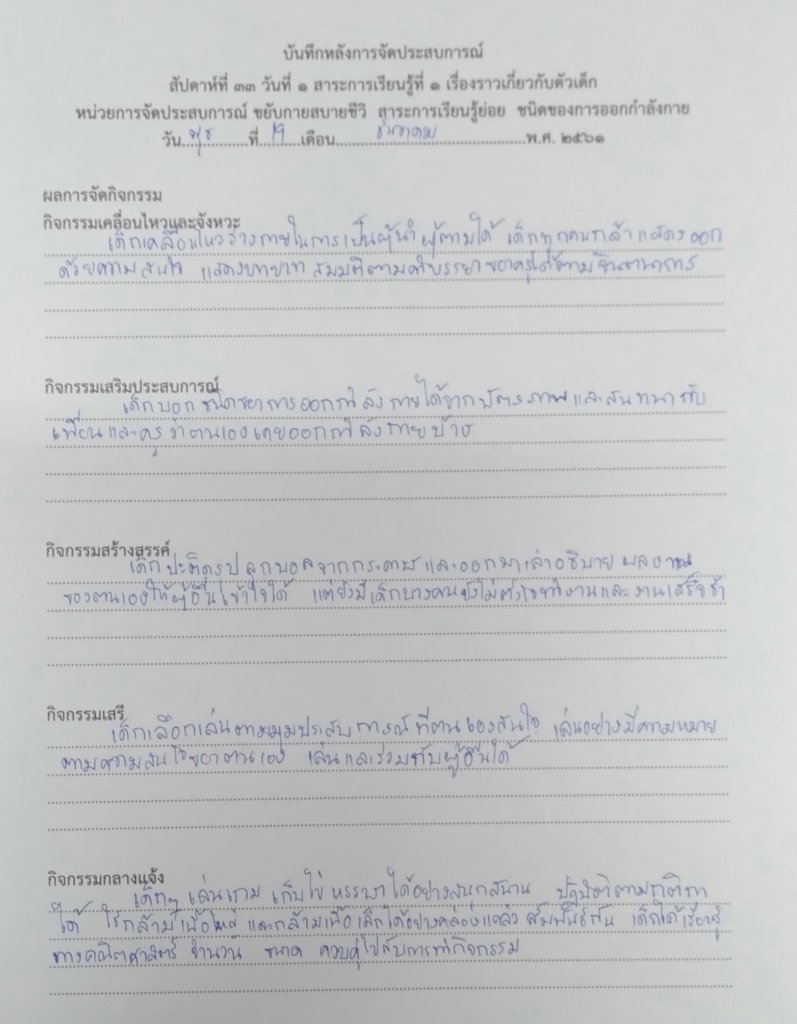 บันทึกหลังการจัดประสบการณ์
สัปดาห์ที่ ๓๓ วันที่ ๑ สาระการเรียนรู้ที่ ๑ เรื่องราวเกี่ยวกับตัวเด็ก
หน่วยการจัดประสบการณ์ ขยับกายสบายชีวี สาระการเรียนรู้ย่อย ชนิดของการออกกำลังกาย
วัน พุธ ที่ 19 เดือน ธันวาคม พ.ศ. ๒๕๖๑
ผลการจัดกิจกรรม
กิจกรรมเคลื่อนไหวและจังหวะ
เด็กเคลื่อนไหวร่างกายในการเป็นผู้นำ ผู้ตามได้ เด็กทุกคนกล้าแสดงออก
ด้วยความสนใจ แสดงบทบาท สมมติตามคำบรรยายของครูได้ตามจินตนาการ
กิจกรรมเสริมประสบการณ์
เด็กบอกชนิดของการออกกำลังกายได้จากบัตรภาพ และสนทนากับ
เพื่อนและครูว่าตนเองเคยออกกำลังกายบ้าง
กิจกรรมสร้างสรรค์
เด็กปะติดรูปลูกบอลจากกระดาษ และออกมาเล่าอธิบายผลงาน
ของตนเองให้ผู้อื่นเข้าใจได้ แต่ยังมีเด็กบางคนยังไม่ตั้งใจทำงานและงานเสร็จช้า
กิจกรรมเสรี
เด็กเลือกเล่นตามมุมประสบการณ์ที่ตนเองสนใจ เล่นอย่างมีความหมาย
ตามความสนใจของตนเอง เล่นและร่วมกับผู้อื่นได้
กิจกรรมกลางแจ้ง
เด็กๆ เล่นเกม เก็บไข่ หรรษาได้อย่างสนุกสนาน ปฏิบัติตามกติกา
ได้ ใช้กล้ามเนื้อใหญ่ และกล้ามเนื้อเล็กได้อย่างคล่องแคล่ว สัมพันธ์กัน เด็กได้เรียนรู้
ทางคณิตศาสตร์ จำนวน ขนาด ควบคู่ไปกับการทำกิจกรรม